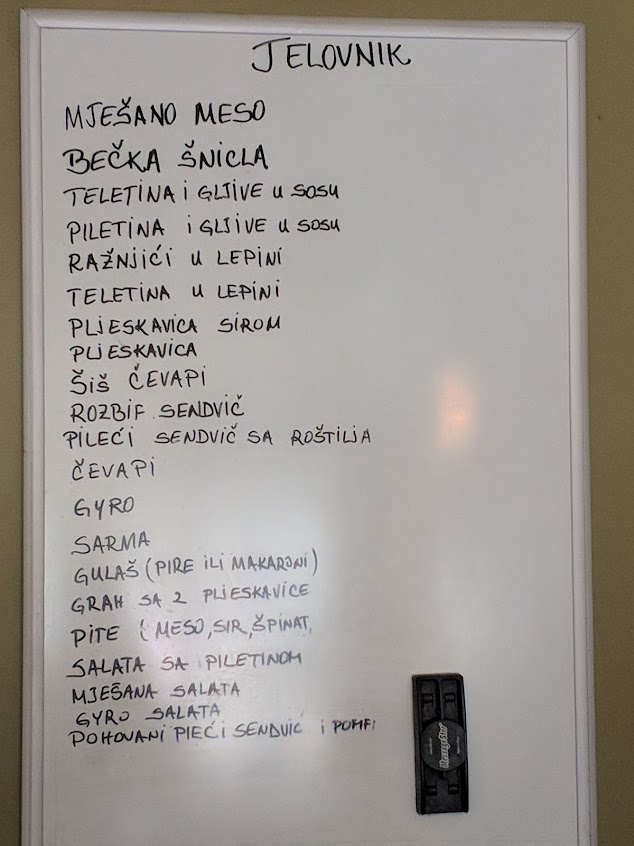 JELOVNIK
MJEŠANO MESO
BEČKA ŠNICLA
TELETINA i GLJIVE u SOSU
PILETINA i GLJIVE u SOSU
RAŽNJIĆI u LEPINI
TELETINA u LEPINI
PLJESKAVICA SIROM
PLJESKAVICA
ŠIŠ ČEVAPI
ROZBIF SENDVIČ
PILEĆI SENDVIČ SA ROŠTILJA
ČEVAPI
GYRO
SARMA
GULAŠ (PIRE ILI MAKARONI)
GRAH SA 2 PLJESKAVICE
PITE (MESO, SIR, ŠPINAT,
SALATA SA PILETINOM
MJEŠANA SALATA
GYRO SALATA
POHOVANI PIEĆI SENDVIĆ i POMFI